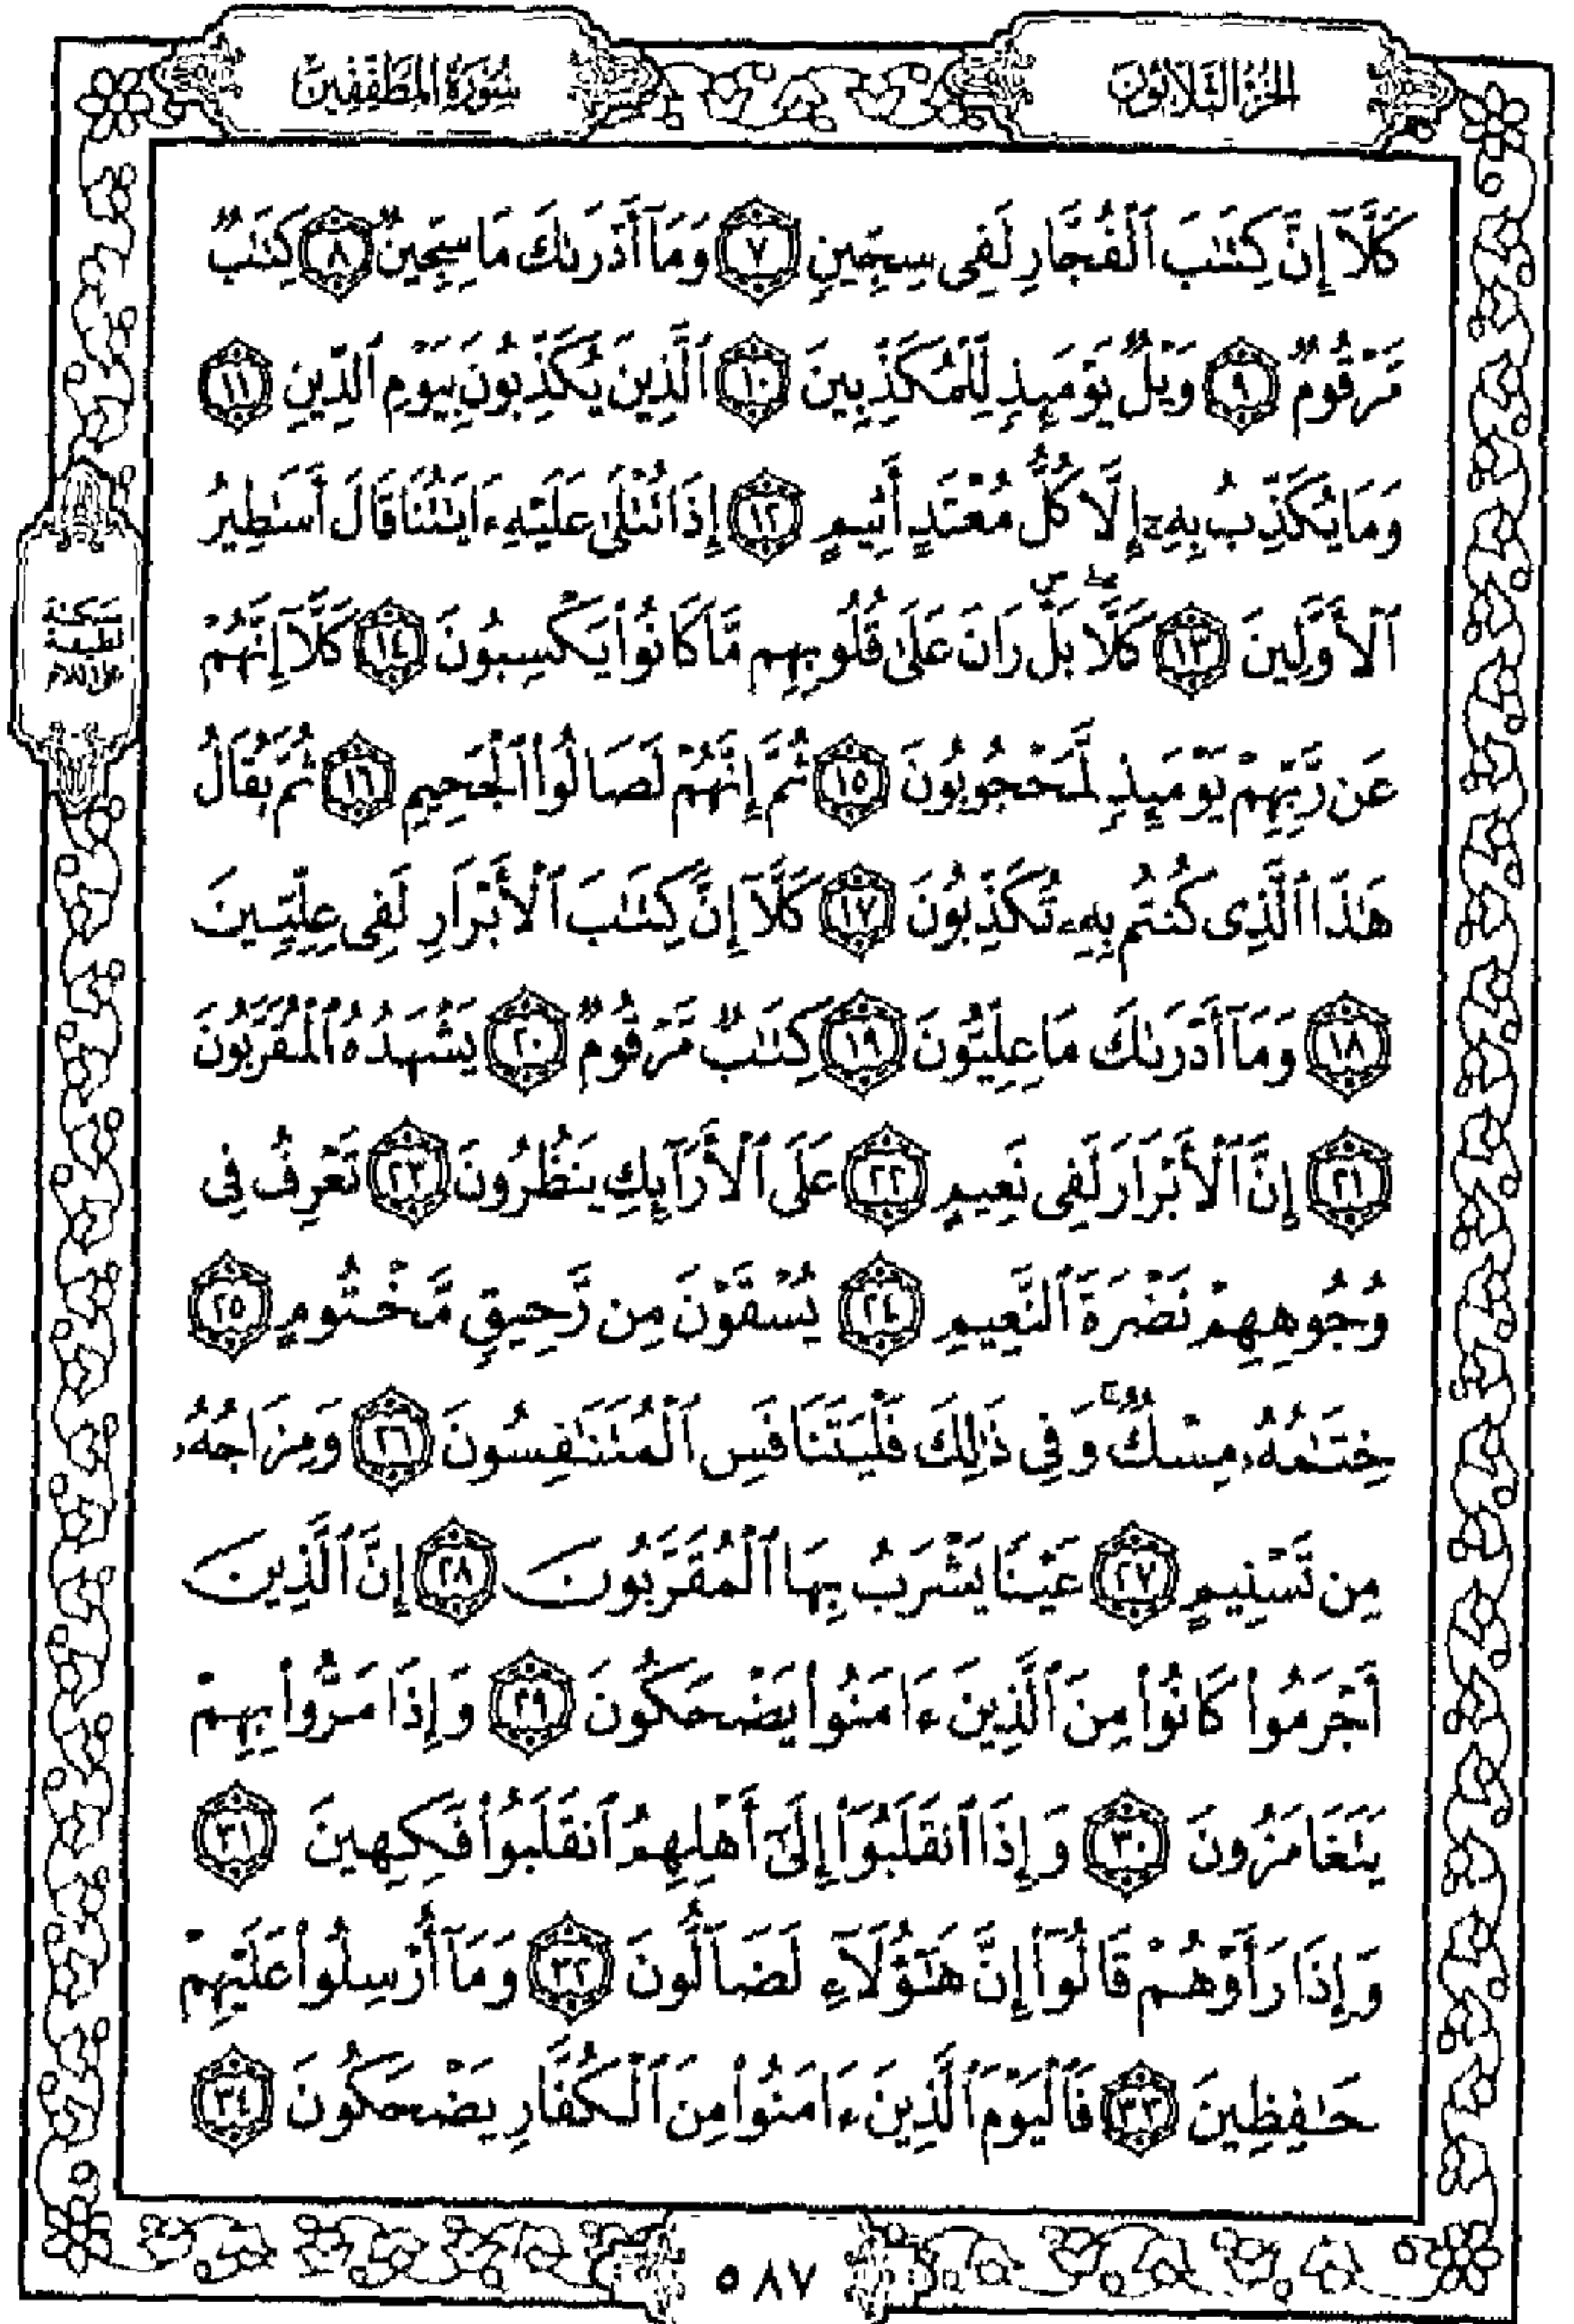 الجزء الثلاثون
سورة المطففين
كَلَّآ إِنَّ كِتَٰبَ ٱلْفُجَّارِ لَفِى سِجِّينٍ ٧ وَمَآ أَدْرَىٰكَ مَا سِجِّينٌ ٨ كِتَٰبٌ
مَّرْقُومٌ ٩ وَيْلٌ يَوْمَئِذٍ لِّلْمُكَذِّبِينَ ١٠ ٱلَّذِينَ يُكَذِّبُونَ بِيَوْمِ ٱلدِّينِ ١١
وَمَا يُكَذِّبُ بِهِۦٓ إِلَّا كُلُّ مُعْتَدٍ أَثِيمٍ ١٢ إِذَا تُتْلَىٰ عَلَيْهِ ءَايَٰتُنَا قَالَ أَسَٰطِيرُ
ٱلْأَوَّلِينَ ١٣ كَلَّا ۖ بَلْ ۜ رَانَ عَلَىٰ قُلُوبِهِم مَّا كَانُوا۟ يَكْسِبُونَ ١٤ كَلَّآ إِنَّهُمْ
عَن رَّبِّهِمْ يَوْمَئِذٍ لَّمَحْجُوبُونَ ١٥ ثُمَّ إِنَّهُمْ لَصَالُوا۟ ٱلْجَحِيمِ ١٦ ثُمَّ يُقَالُ
هَٰذَا ٱلَّذِى كُنتُم بِهِۦ تُكَذِّبُونَ ١٧ كَلَّآ إِنَّ كِتَٰبَ ٱلْأَبْرَارِ لَفِى عِلِّيِّينَ
١٨ وَمَآ أَدْرَىٰكَ مَا عِلِّيُّونَ ١٩ كِتَٰبٌ مَّرْقُومٌ ٢٠ يَشْهَدُهُ ٱلْمُقَرَّبُونَ
٢١ إِنَّ ٱلْأَبْرَارَ لَفِى نَعِيمٍ ٢٢ عَلَى ٱلْأَرَآئِكِ يَنظُرُونَ ٢٣ تَعْرِفُ فِى
وُجُوهِهِمْ نَضْرَةَ ٱلنَّعِيمِ ٢٤ يُسْقَوْنَ مِن رَّحِيقٍ مَّخْتُومٍ ٢٥
خِتَٰمُهُۥ مِسْكٌ ۚ وَفِى ذَٰلِكَ فَلْيَتَنَافَسِ ٱلْمُتَنَٰفِسُونَ ٢٦ وَمِزَاجُهُۥ
مِن تَسْنِيمٍ ٢٧ عَيْنًا يَشْرَبُ بِهَا ٱلْمُقَرَّبُونَ ٢٨ إِنَّ ٱلَّذِينَ
أَجْرَمُوا۟ كَانُوا۟ مِنَ ٱلَّذِينَ ءَامَنُوا۟ يَضْحَكُونَ ٢٩ وَإِذَا مَرُّوا۟ بِهِمْ
يَتَغَامَزُونَ ٣٠ وَإِذَا ٱنقَلَبُوٓا۟ إِلَىٰٓ أَهْلِهِمُ ٱنقَلَبُوا۟ فَكِهِينَ ٣١
وَإِذَا رَأَوْهُمْ قَالُوٓا۟ إِنَّ هَٰٓؤُلَآءِ لَضَآلُّونَ ٣٢ وَمَآ أُرْسِلُوا۟ عَلَيْهِمْ
حَٰفِظِينَ ٣٣ فَٱلْيَوْمَ ٱلَّذِينَ ءَامَنُوا۟ مِنَ ٱلْكُفَّارِ يَضْحَكُونَ ٣٤
سكتة
لطيفة
على اللام
٥٨٧